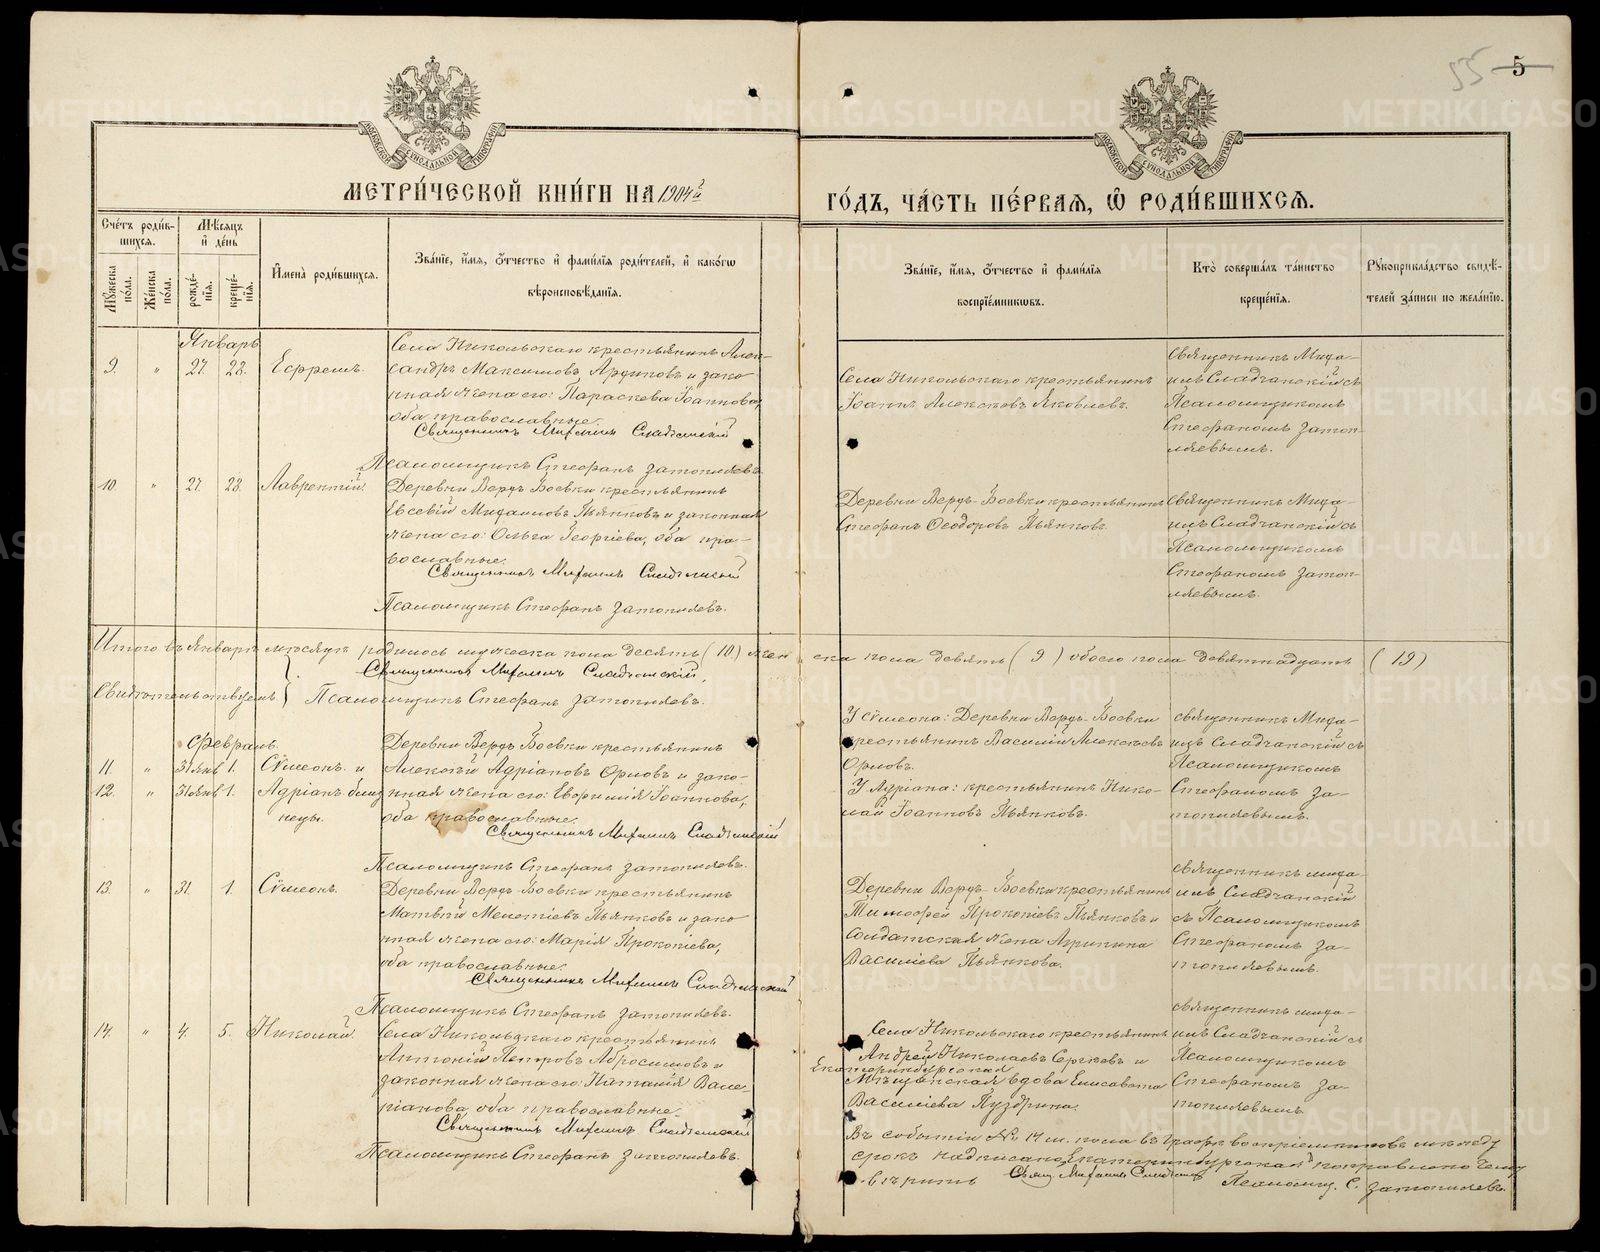 55 5
МЕТРИ́ЧЕСКОЙ КНИ́ГИ НА 1904й
ГО́ДЪ, ЧА́СТЬ ПЕ́РВАЯ, Ѡ РОДИ́ВШИХСЯ.
МОСКОВСКОЙ СУНОДАЛЬНОЙ ТИПОГРАФІИ
МОСКОВСКОЙ СУНОДАЛЬНОЙ ТИПОГРАФІИ
Сче́тъ роди́вшихся.
Мѣ́сяцъ и де́нь
Му́жеска по́ла.
Же́нска по́ла.
рожде́нія.
креще́нія.
И҆мена̀ роди́вшихся.
Зва́ніе, и҆́мя, ѻ҆́тчество и҆ фами́лія роди́телей, и҆ како́гѡ
вѣроисповѣ́данія.
Зва́ніе, и҆́мя, ѻ҆́тчество и҆ фами́лія
воспріе́мникѡвъ.
Кто̀ соверша́лъ та́инство
креще́нія.
Рукоприкла́дство свидѣ́-
телей за́писи по жела́нію.
Январь
9. " 27. 28. Ефремъ.
Села Никольскаго крестьянинъ Алек-
сандръ Максимовъ Ардиковъ и зако-
нная жена его: Параскева Іоаннова,
оба православные.
Священникъ Михаилъ Сладчанскій
Псаломщикъ Стефанъ Затопляевъ.
Села Никольскаго крестьянинъ
Іоаннъ Алексѣевъ Яковлевъ.
Священникъ Миха-
илъ Сладчанскій съ
Псаломщикомъ
Стефаномъ Затоп-
ляевымъ.
10. " 27. 28. Лаврентій.
Деревни Верхъ-Боевки крестьянинъ
Евсевій Михаиловъ Пьянковъ и законная
жена его: Ольга Георгіева, оба пра-
вославные.
Священникъ Михаилъ Сладчанскій
Псаломщикъ Стефанъ Затопляевъ.
Деревни Верхъ-Боевки крестьянинъ
Стефанъ Ѳеодоровъ Пьянковъ.
Священникъ Миха-
илъ Сладчанскій съ
Псаломщикомъ
Стефаномъ Затоп-
ляевымъ.
Итого въ Январѣ мѣсяцѣ родилось мужеска пола десять (10) жен ска пола девять (9) обоего пола девятнадцать (19)
Священникъ Михаилъ Сладчанскій,
Свидѣтельствуемъ } Псаломщикъ Стефанъ Затопляевъ.
Февраль.
11. " 31 янв 1. Сѵмеонъ и
12. " 31 янв 1. Адріанъ близ
нецы.
Деревни Верхъ-Боевки крестьянинъ
Алексѣй Адріановъ Орловъ и зако-
нная жена его: Евфимія Іоаннова,
оба православные.
Священникъ Михаилъ Сладчанскій
Псаломщикъ Стефанъ Затопляевъ.
У Сѵмеона: Деревни Верхъ-Боевки
крестьянинъ Василій Алексѣевъ
Орловъ.
У Адріана: крестьянинъ Нико-
лай Іоанновъ Пьянковъ.
Священникъ Миха-
илъ Сладчанскій съ
Псаломщикомъ
Стефаномъ За-
топляевымъ.
13. " 31. 1. Сѵмеонъ.
Деревни Верхъ-Боевки крестьянинъ
Матвѣй Мелетіевъ Пьянковъ и зако-
нная жена его: Марія Прокопіева,
оба православные.
Священникъ Михаилъ Сладчанскій
Псаломщикъ Стефанъ Затопляевъ.
Деревни Верхъ-Боевки крестьянинъ
Тимофей Прокопіевъ Пьянковъ и
Солдатская жена Агрипина
Василіева Пьянкова.
Священникъ Миха-
илъ Сладчанскій
съ Псаломщикомъ
Стефаномъ За-
топляевымъ.
14. " 4. 5. Николай.
Села Никольскаго крестьянинъ
Антоній Петровъ Абросимовъ и
законная жена его: Наталія Вале-
ріанова, оба православные.
Священникъ Михаилъ Сладчанскій
Псаломщикъ Стефанъ Затопляевъ.
Села Никольскаго крестьянинъ
Андрей Николаевъ Сергѣевъ и
Екатеринбургская
Мѣщанская вдова Елисавета
Василіева Пуздрина.
Священникъ Миха-
илъ Сладчанскій съ
Псаломщикомъ
Стефаномъ За-
топляевымъ.
Въ событіи № 14 м. пола въ графѣ воспріемниковъ между
срокъ надписано „Екатеринбургская" поправлено чему
вѣрить Свящ. Михаилъ Сладчанскій
Псаломщ. С. Затопляевъ.
METRIKI.GASO-URAL.RU